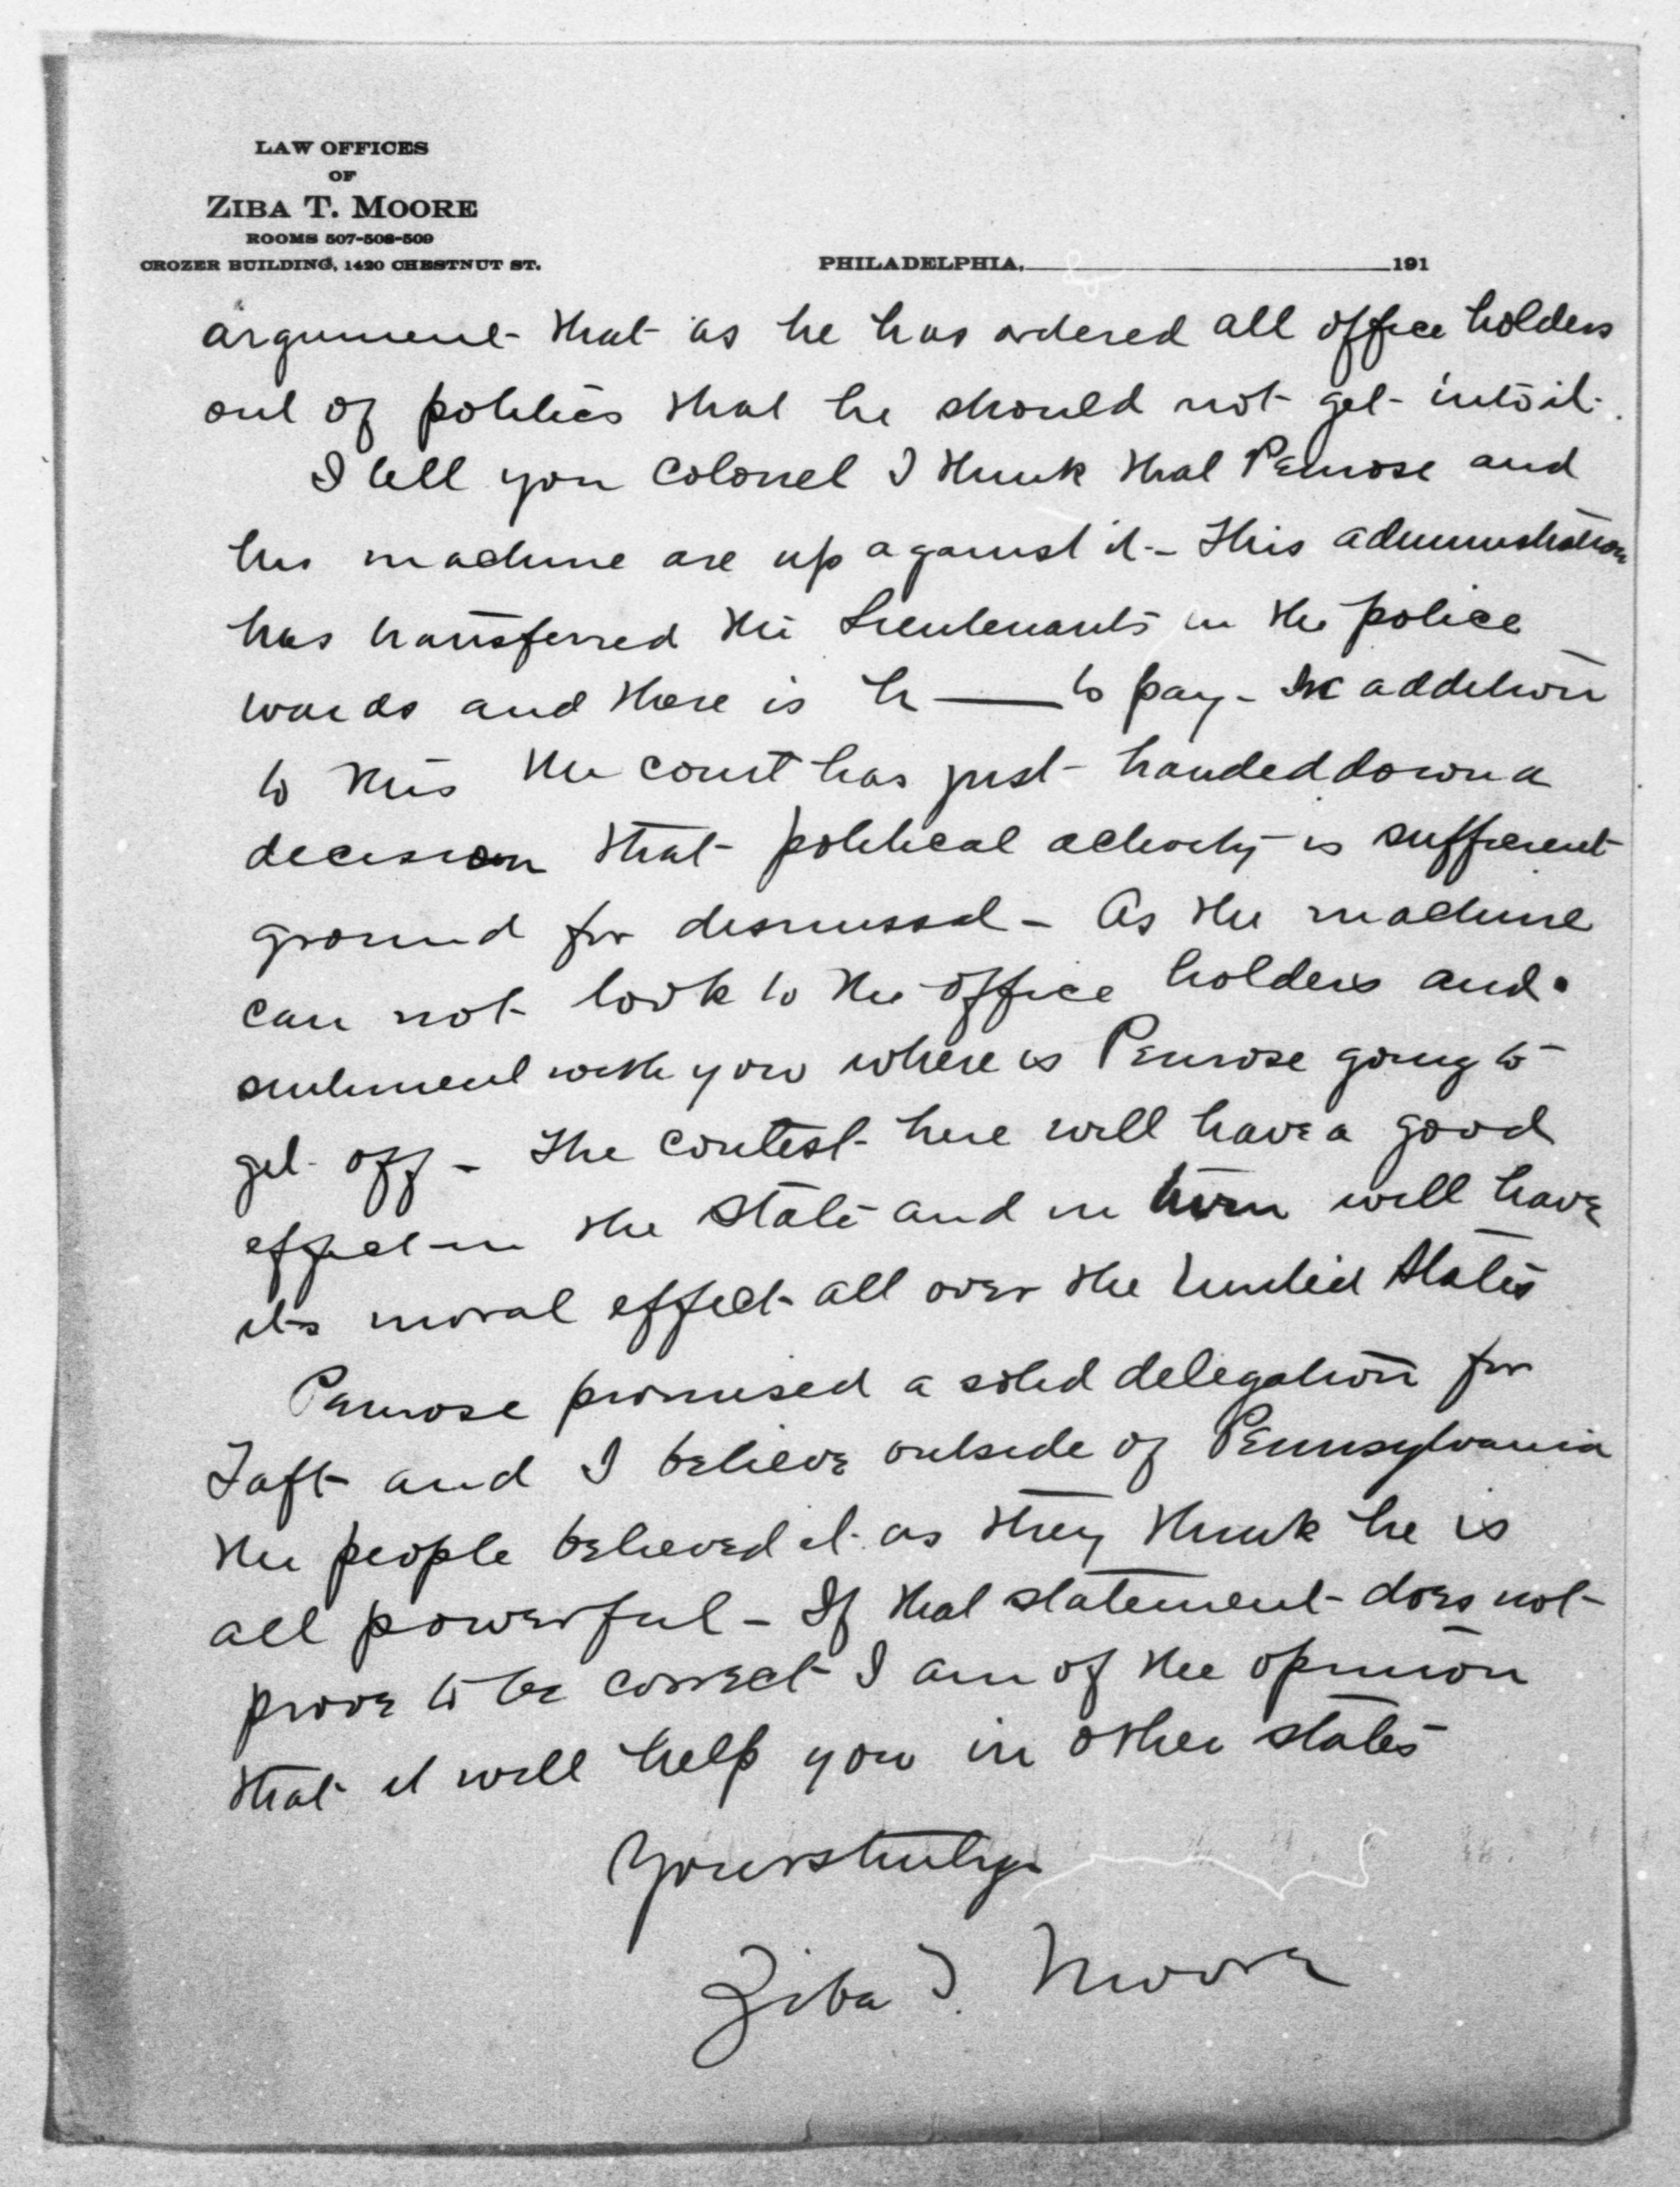 LAW OFFICES
OF
ZIBA T. MOORE
ROOMS 507-508-509
CROZER BUILDING, 1420 CHESTNUT ST.
PHILADELPHIA, 191
argument that as he has ordered all office holders
out of politics that he should not get into it.
I tell you Colonel I think that Penrose and
his machine are up against it - This administration
has transferred the Lieutenants in the police
wards and there is h—— to pay - In addition
to this the court has just handed down a
decision that political activity is sufficient
ground for dismissal - As the machine
can not look to the office holders and
sentiment with you where is Penrose going to
get off - The contest here will have a good
effect in the State and in turn will have
its moral effect all over the United States
Penrose promised a solid delegation for
Taft and I believe outside of Pennsylvania
the people believed it as they think he is
all powerful - If that statement does not
prove to be correct I am of the opinion
that it will help you in other states
Yours truly
Ziba T. Moore